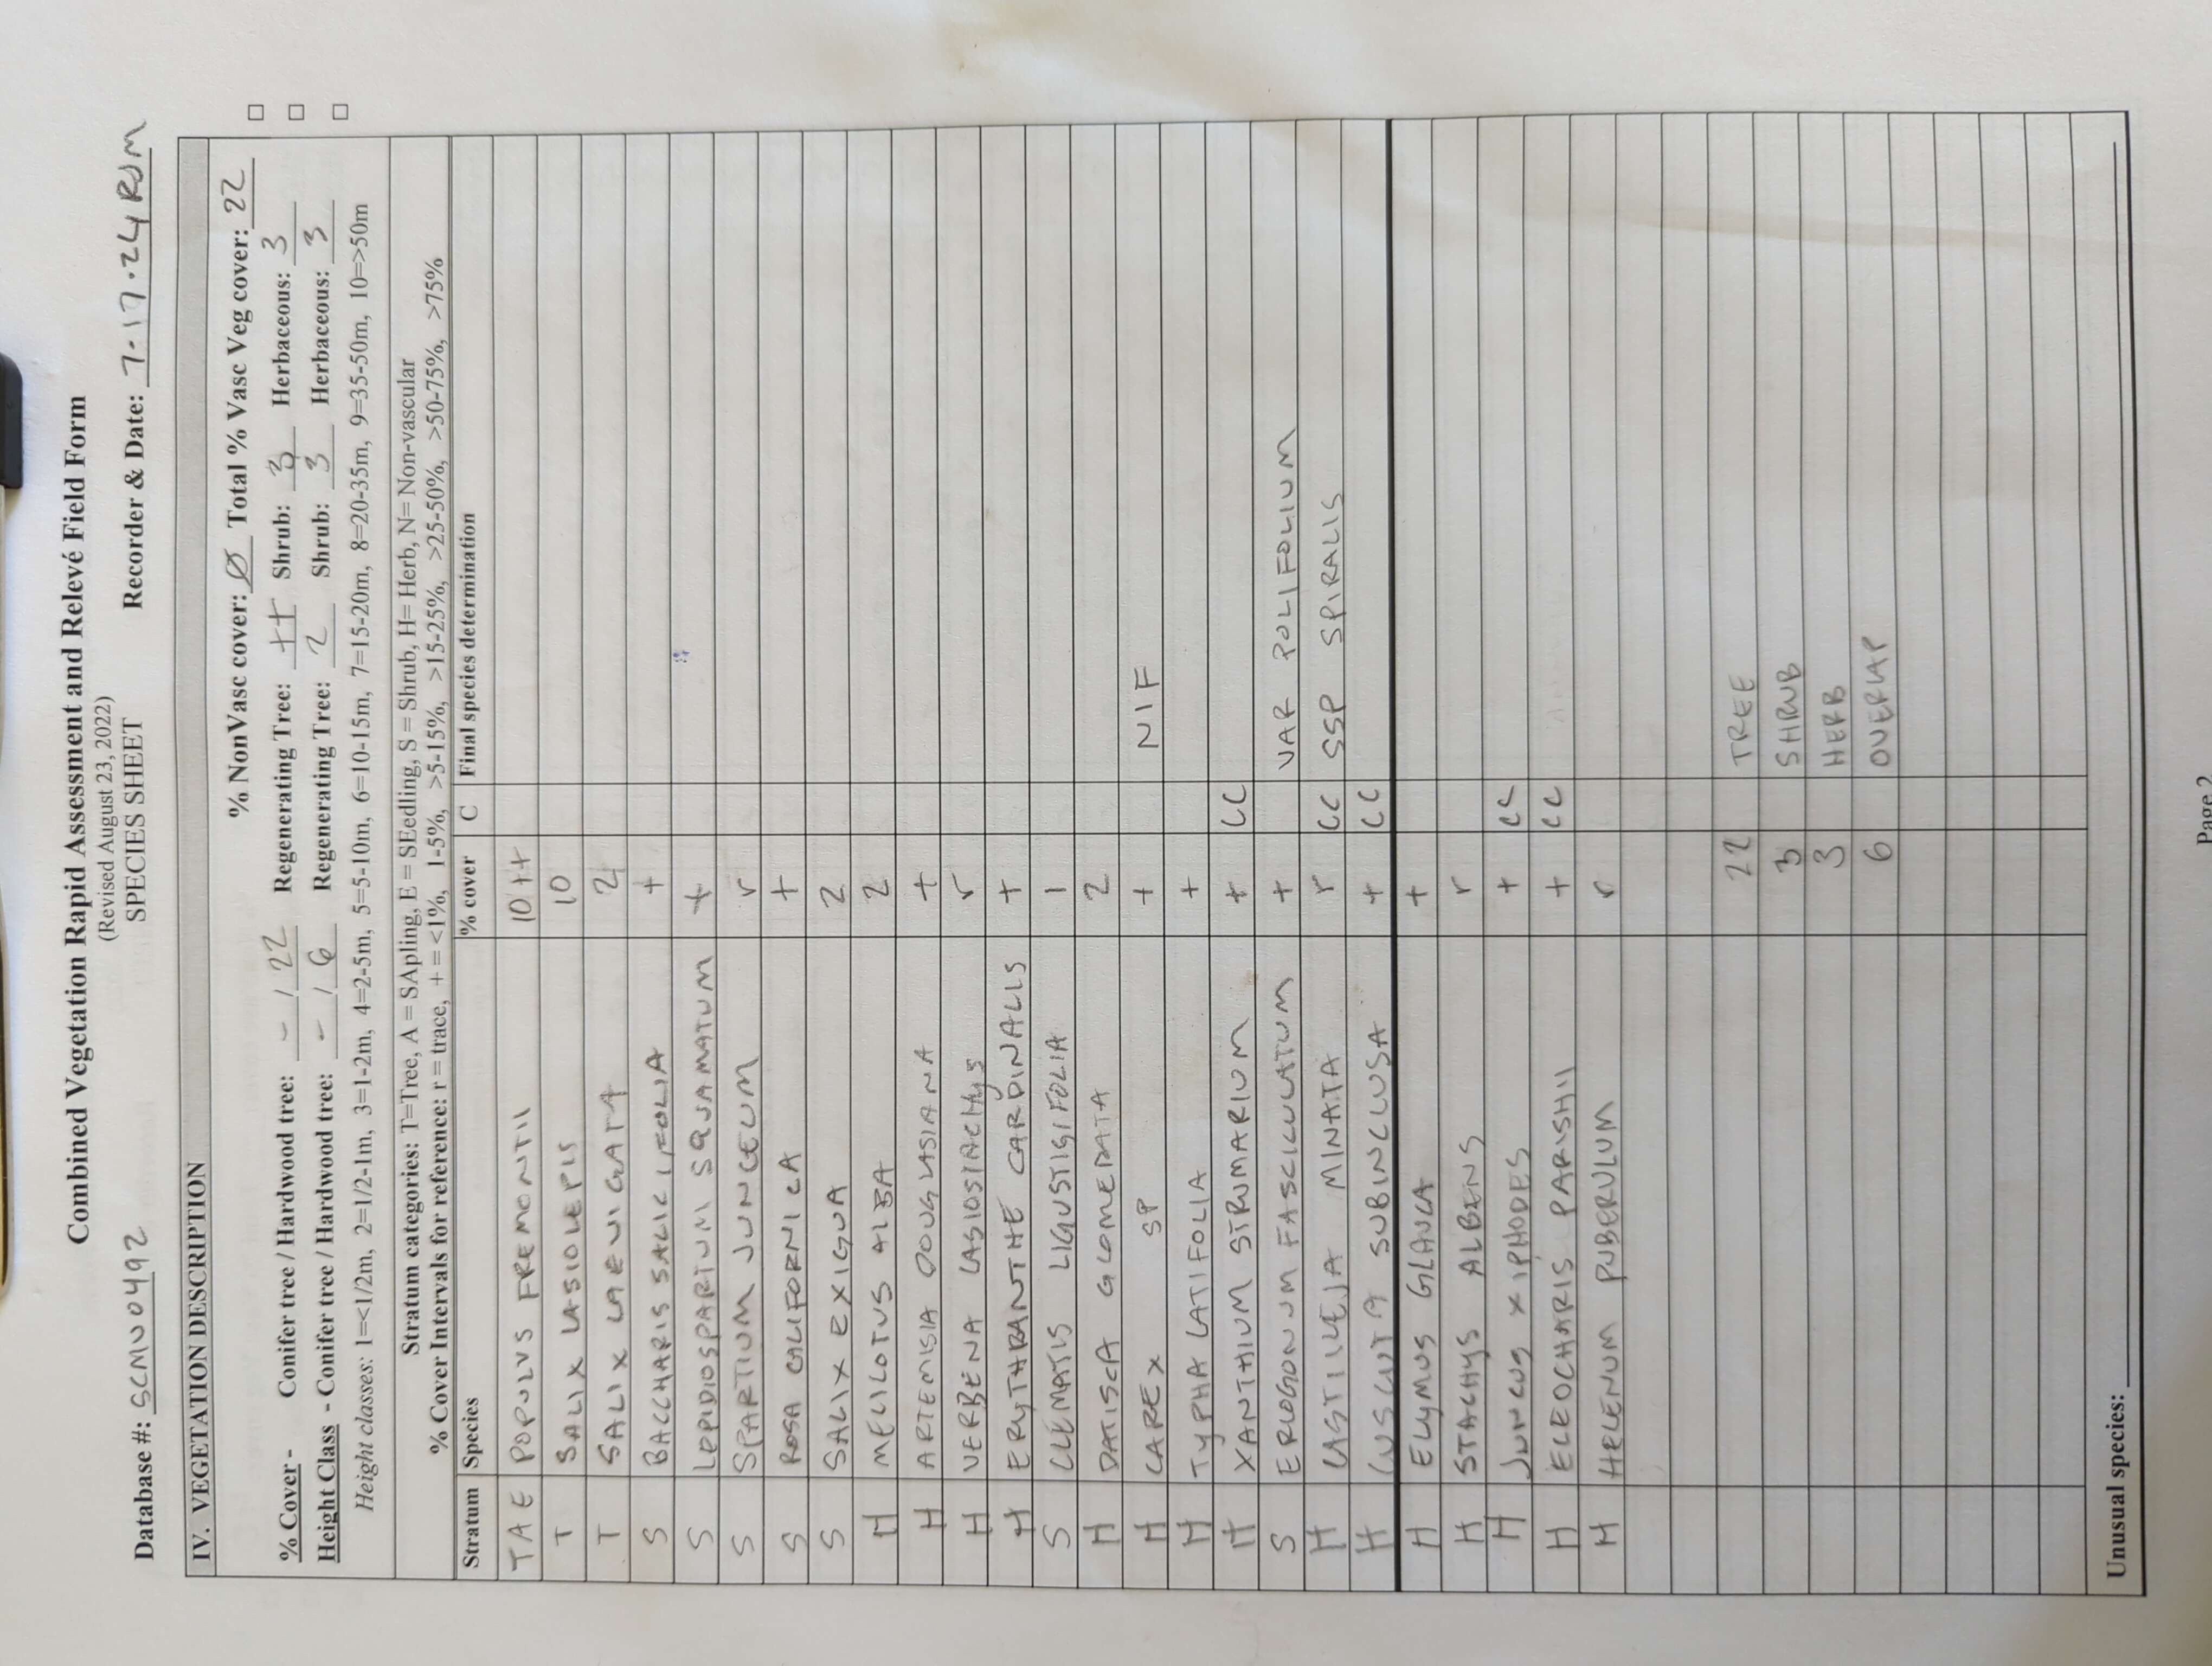 Combined Vegetation Rapid Assessment and Relevé Field Form
(Revised August 23, 2022)
SPECIES SHEET
Database #: SCMN0492 Recorder & Date: 7-17-24 RJM
IV. VEGETATION DESCRIPTION
% NonVasc cover: Ø Total % Vasc Veg cover: 22
% Cover - Conifer tree / Hardwood tree: - / 22 Regenerating Tree: ++ Shrub: 3 Herbaceous: 3
Height Class - Conifer tree / Hardwood tree: - / 6 Regenerating Tree: 2 Shrub: 3 Herbaceous: 3
Height classes: 1=<1/2m, 2=1/2-1m, 3=1-2m, 4=2-5m, 5=5-10m, 6=10-15m, 7=15-20m, 8=20-35m, 9=35-50m, 10=>50m
Stratum categories: T=Tree, A = SApling, E = SEedling, S = Shrub, H= Herb, N= Non-vascular
% Cover Intervals for reference: r = trace, + = <1%, 1-5%, >5-15%, >15-25%, >25-50%, >50-75%, >75%
Stratum Species % cover C Final species determination
TAE POPULUS FREMONTII 10++
T SALIX LASIOLEPIS 10
T SALIX LAEVIGATA 2
S BACCHARIS SALICIFOLIA +
S LEPIDIOSPARTUM SQUAMATUM +
S SPARTIUM JUNCEUM r
S ROSA CALIFORNICA +
S SALIX EXIGUA 2
H MELILOTUS ALBA 2
H ARTEMISIA DOUGLASIANA +
H VERBENA LASIOSTACHYS r
H ERYTHRANTHE CARDINALIS +
S CLEMATIS LIGUSTIGIFOLIA 1
H DATISCA GLOMERATA 2
H CAREX SP + NIF
H TYPHA LATIFOLIA +
H XANTHIUM STRUMARIUM + CC
S ERIOGONUM FASCICULATUM + VAR POLIFOLIUM
H CASTILLEJA MINATA r CC SSP SPIRALIS
H CUSCUTA SUBINCLUSA + CC
H ELYMUS GLAUCA +
H STACHYS ALBENS r
H JUNCUS XIPHODES + CC
H ELEOCHARIS PARISHII + CC
H HELENUM PUBERULUM r
22 TREE
3 SHRUB
3 HERB
6 OVERLAP
Unusual species:
Page 2